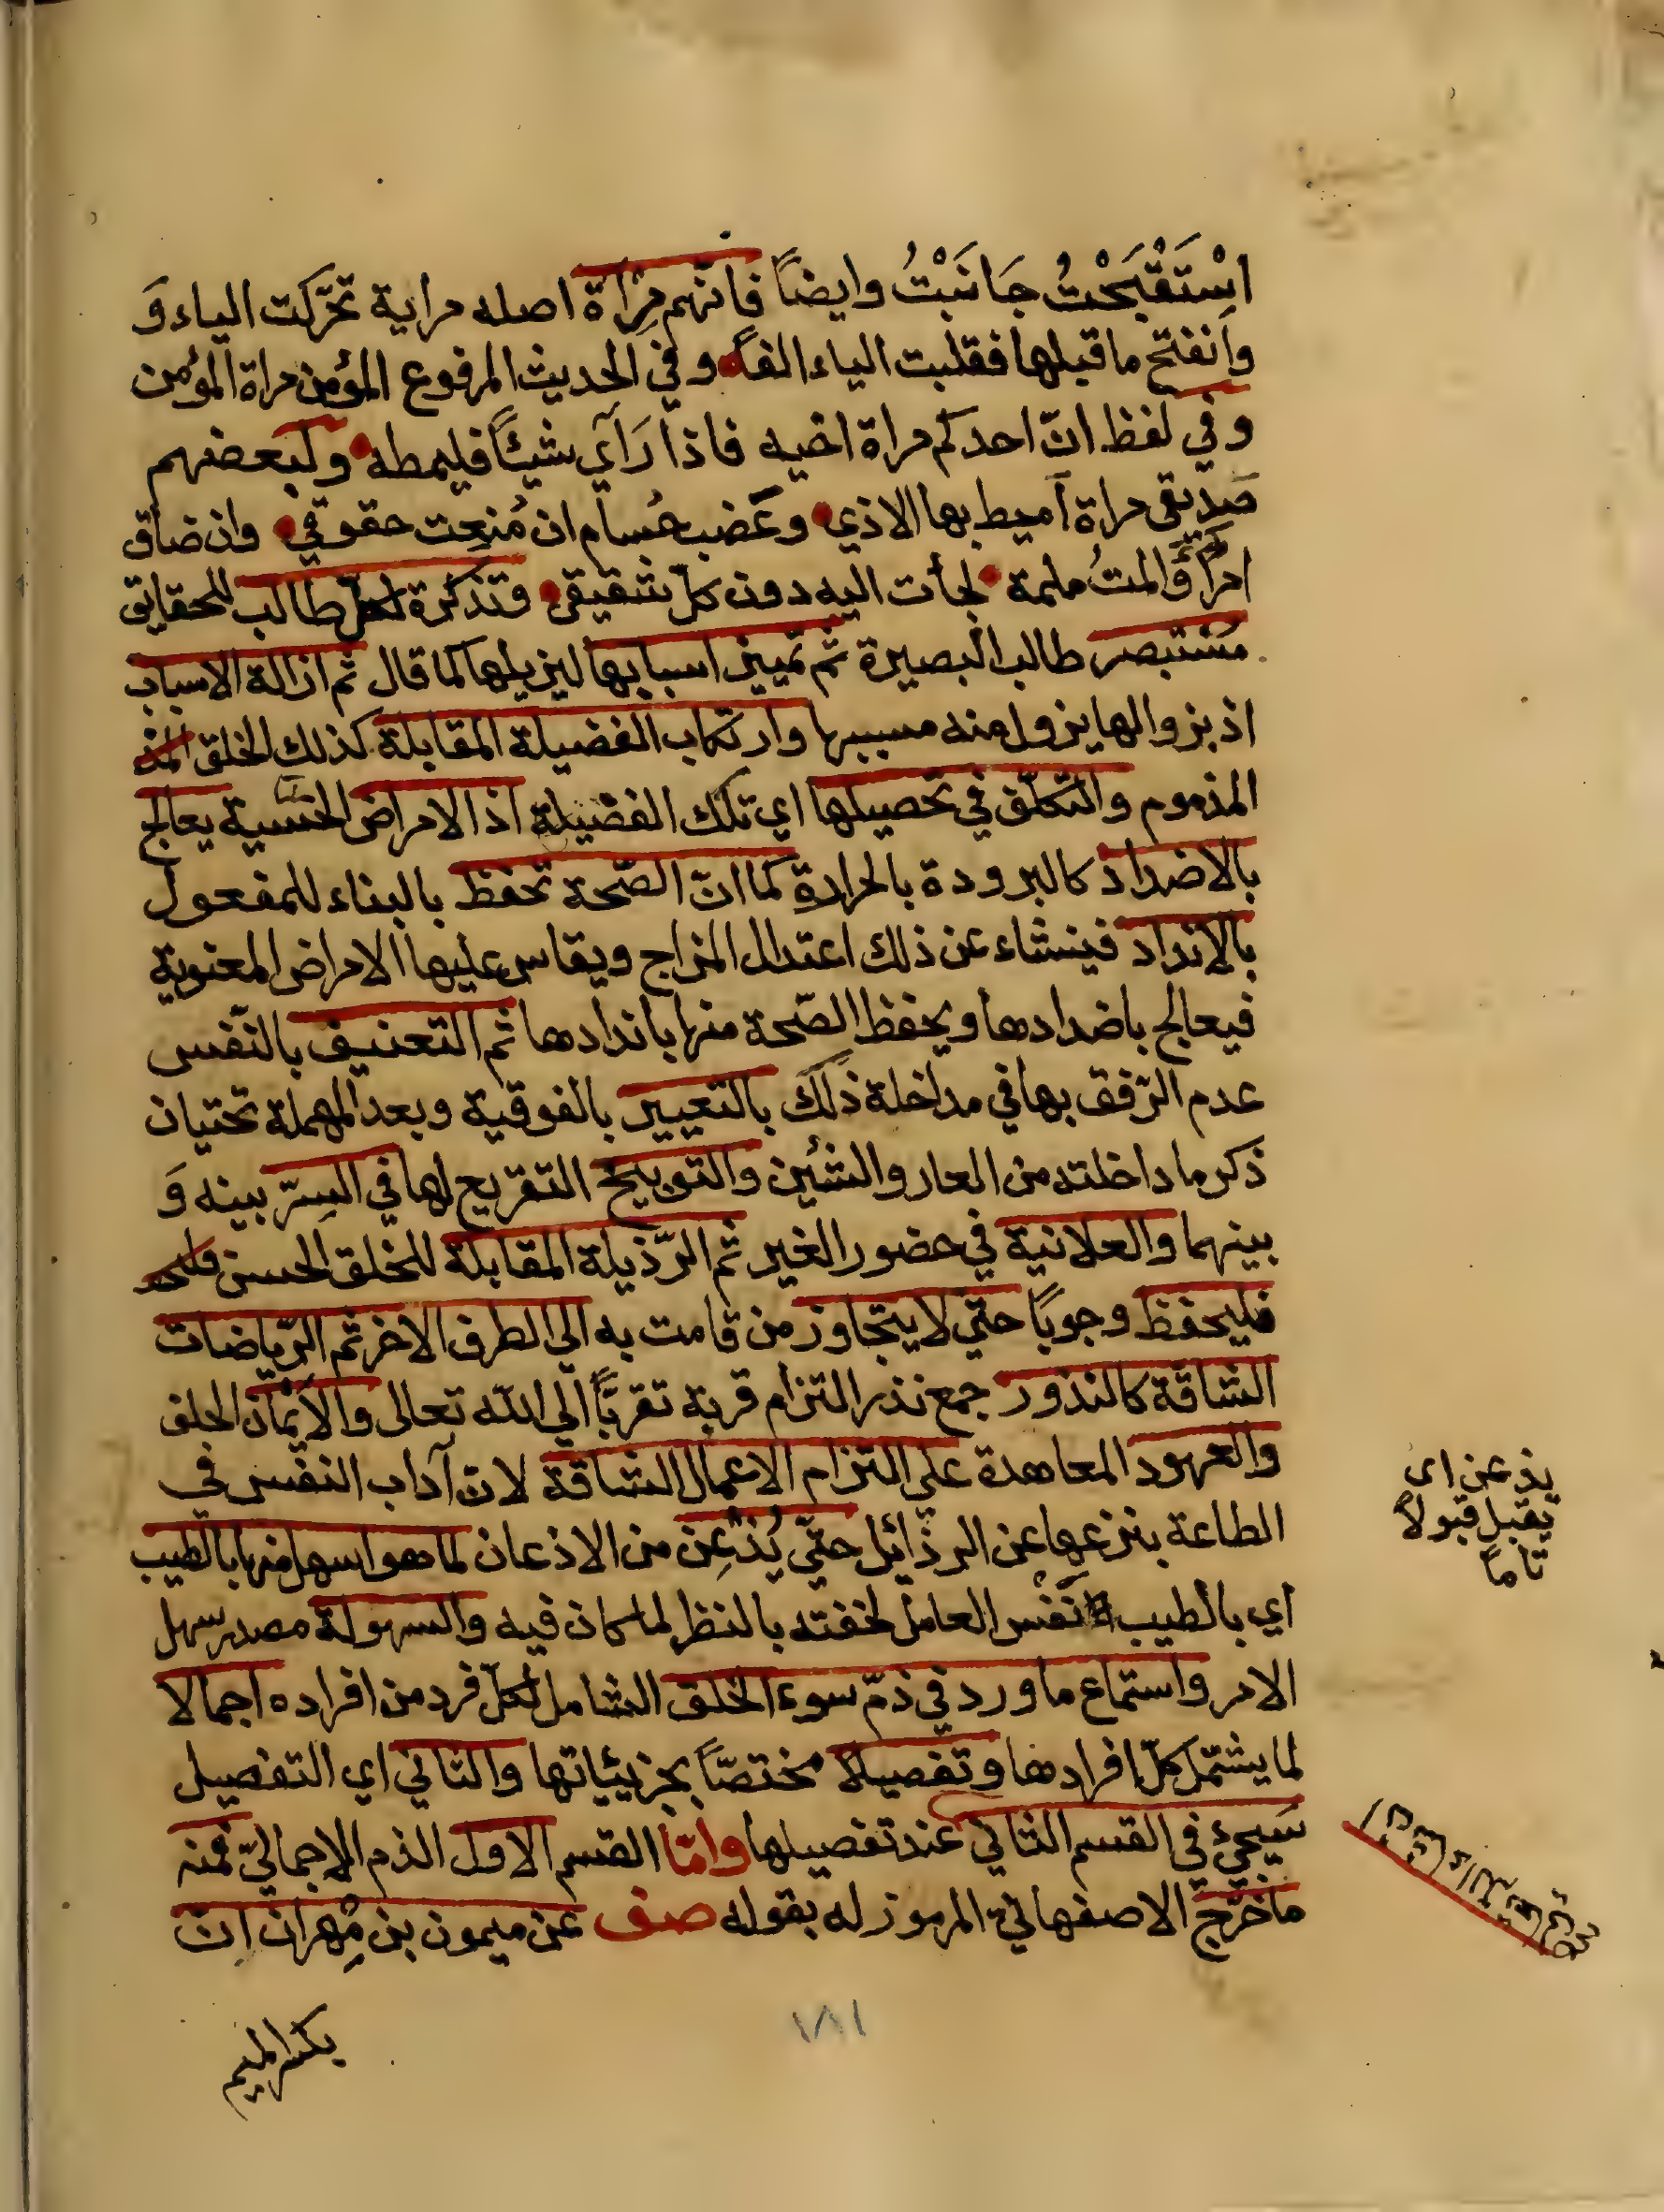 اسْتَقْبَحْتُ جَانَبْتُ وايضاً فانّهم مِرْاٰة اصله مراية تحرّكت الياء وَ
وانفتح ما قبلها فقلبت الياء الفاً وفي الحديث المرفوع المؤمن مراة المؤمن
وفي لفظ انّ احدكم مراة اخيه فاذا رَآي شيئاً فليمطه ولبعضهم
صديقي مراة آميط بها الاذي وعَضب حُسام ان مُنعت حقوقي وان ضاق
امرٌ وَالمتُ ملمة لجأت اليه دون كلّ شقيقي وتذكرة لكلّ طالب للحقايق
مُسْتبصر طالب البصيرة ثم تمييز اسبابها ليزيلها كما قال ثم ازالة الاسباب
اذ بزوالها يزول منه مسببها وارتكاب الفضيلة المقابلة كذلك الخلق المذ
المذموم والتكلّف في تحصيلها اي تلك الفضيلة اذ الامراض الحسّية يعالج
بالاضداد كالبرودة بالحرارة كما انّ الصّحة تحفظ بالبناء للمفعول
بالانداد فينشاء عن ذلك اعتدال المزاج ويقاس عليها الامراض المعنوية
فيعالج باضدادها ويحفظ الصّحة منها باندادها ثم التعنيف بالنّفس
عدم الرّفق بها في مداخلة ذلك بالتعيير بالفوقية وبعد المهملة تحتيان
ذكر ما داخلته من العار والشئين والتوبيخ التقريع لها في السِرّ بينه وَ
بينهما والعلانية في حضور الغير ثم الرّذيلة المقابلة للخلق الحسن فلتحـ
فليحفظ وجوباً حتي لا يتجاوز من قامت به الي الطرف الاخر ثم الرّياضات
الشاقة كالنذور جمع نذر التزام قربة تقربّاً الي الله تعالى والايْمان الحلف
والعهود المعاهدة علي التزام الاعمال الشاقة لان آداب النفس في
الطاعة بنزعها عن الرذائل حتّي يُذْعِن من الاذعان لما هو اسهل منها بالطيب
اي بالطيب نَفْس العامل لخفته بالنظر لما كان فيه والسهولة مصدر سهل
الامر واستماع ما ورد في ذمّ سوء الخلق الشامل لكلّ فرد من افراده اجمالا
لما يشتمل كلّ افرادها وتفصيلاً مختصّاً بجزئياتها والثاني اي التفصيل
سَيجئ في القسم الثاني عند تفصيلها وامّا القسم الاول الذم الاجماليّ فمنه
ما خرّج الاصفهاني المرموز له بقوله صف عن ميمون بن مِهران انّ
يذعن اى
يقبل قبولاً
تاماً
بكسر الميم
١٨١